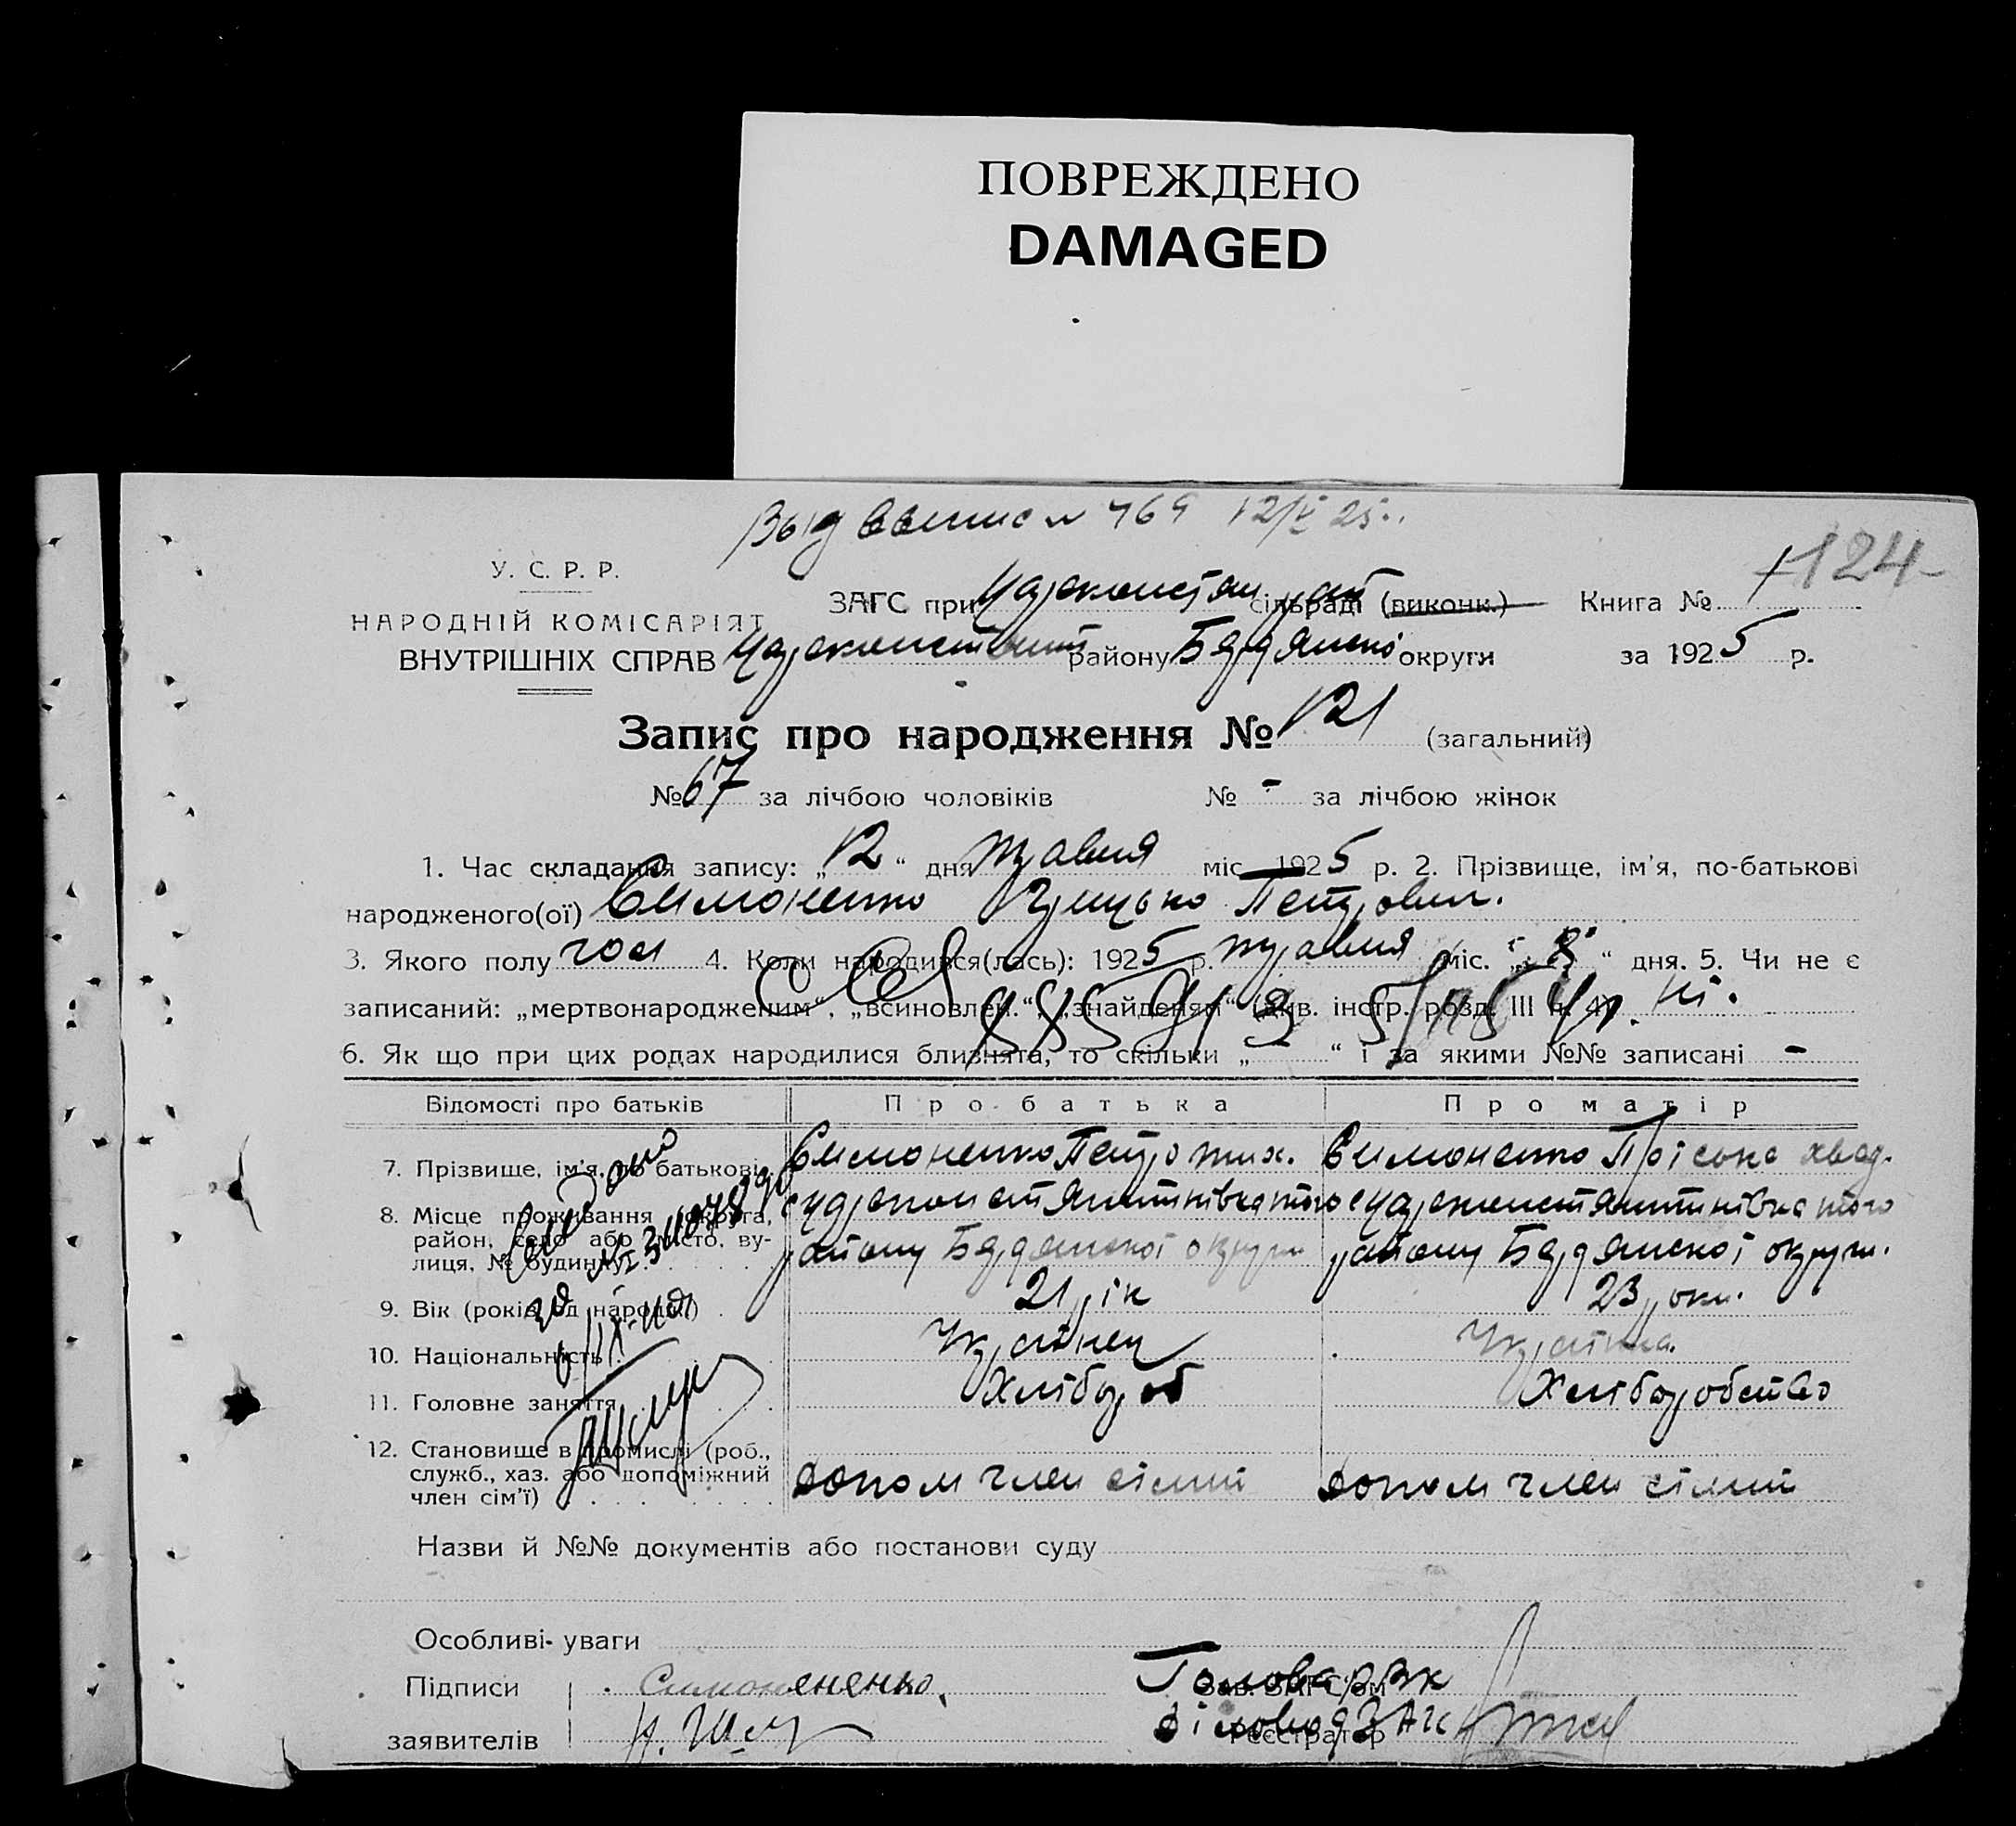 ПОВРЕЖДЕНО
DAMAGED
Выд 769 12/V 25.
124
У. С. Р. Р.
НАРОДНІЙ КОМІСАРІЯТ
ВНУТРІШНІХ СПРАВ
ЗАГС при Цареконстан сільраді (виконк.) Книга №
Цареконстант району Бердянсько округи за 1925 р.
Запис про народження № 121 (загальний)
№ 67 за лічбою чоловіків № - за лічбою жінок
1. Час складання запису: „12“ дня травня міс. 1925 р. 2. Прізвище, ім'я, по-батькові
народженого(ої) Симоненко Грицько Петрович.
3. Якого полу чол 4. Коли народився(лась): 1925 р. травня міс. „8“ дня. 5. Чи не є
записаний: „мертвонародженим“, „всиновлен.“, „знайденям“ (див. інстр. розд. III ч. 4). Ні.
6. Як що при цих родах народилися близнята, то скільки „ “ і за якими №№ записані -
Відомості про батьків Про батька Про матір
7. Прізвище, ім'я, по батькові Симоненко Петро Тих. Симоненко Пріська
8. Місце проживання (округа, район, село або місто, вулиця, № будинку) с Цареконстянтинівка того с Цареконстянтинівка того
району Бердянської округи району Бердянської округи.
9. Вік (років од народж.) 21 рік 23 роки.
10. Національність Українец Українка.
11. Головне заняття Хлібороб Хліборобство
12. Становище в промислі (роб., служб., хаз. або допоміжний член сім'ї) допом член сімии допом член сімии
Назви й №№ документів або постанови суду
Особливі уваги
Підписи Симоненко, Голова РВК
Зав. ЗАГС'ом
заявителів Діловод ЗАГС
Реєстратор